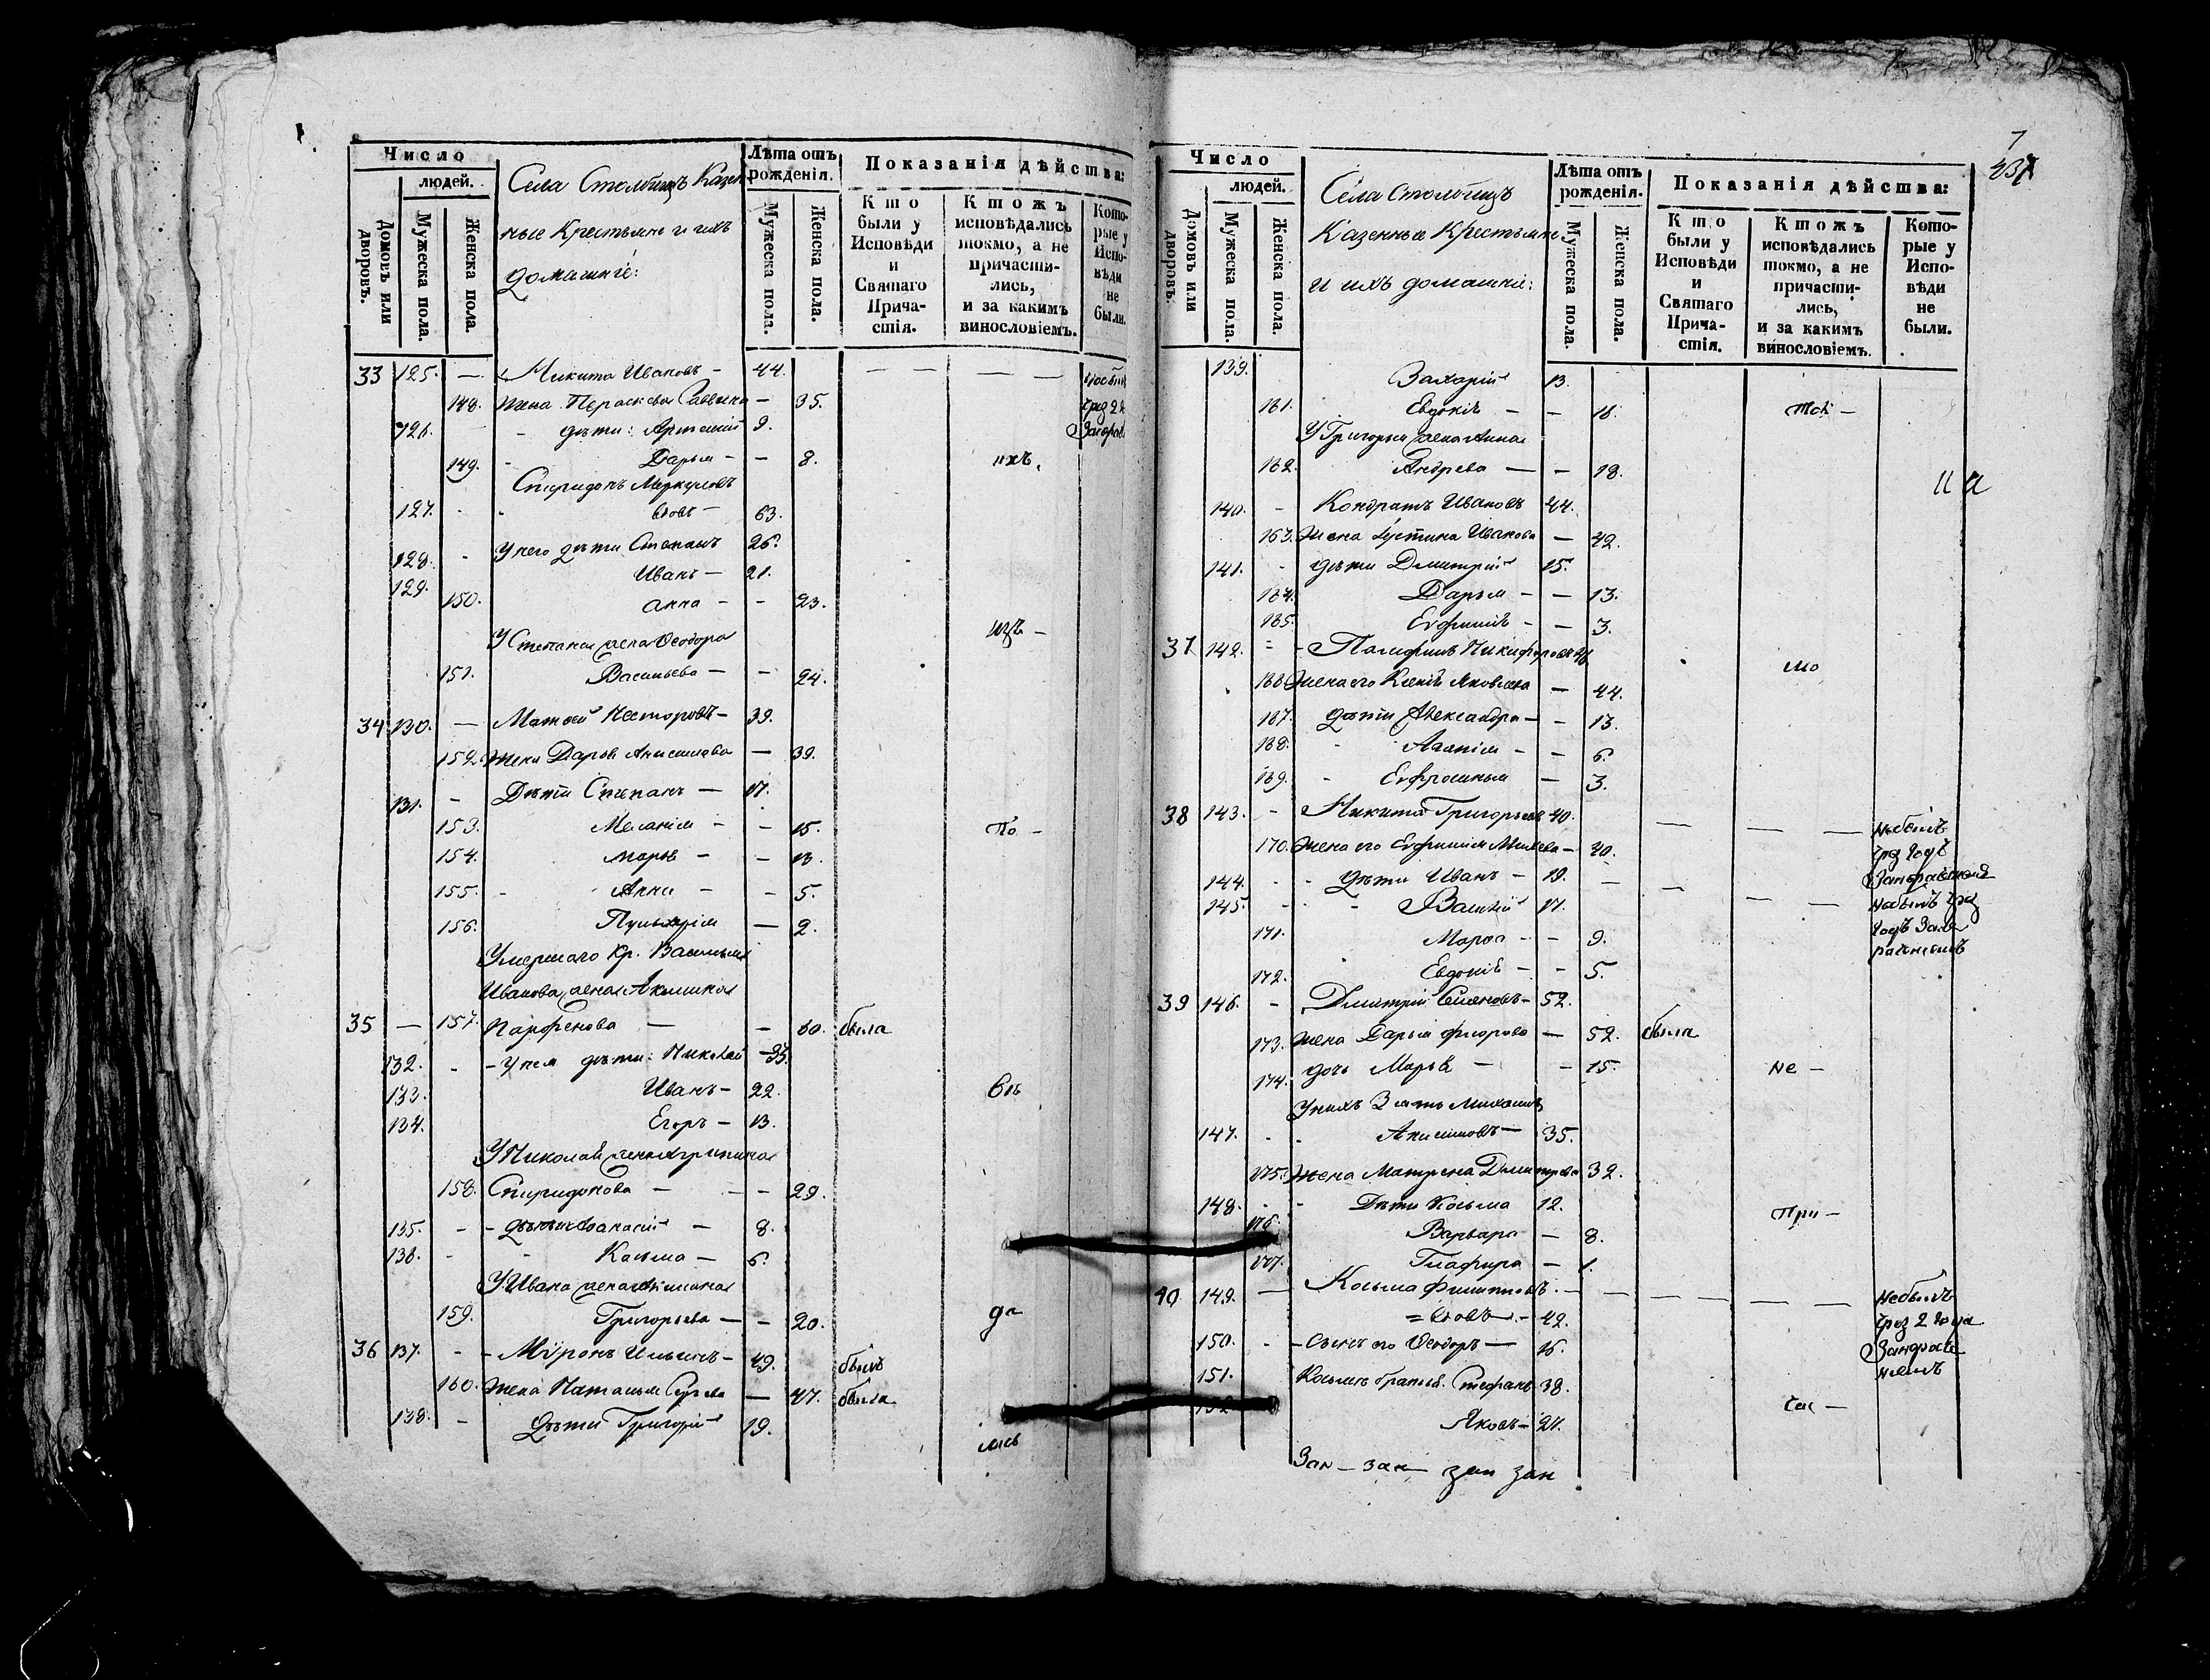 Число
людей.
Домовъ или дворовъ.
Мужеска пола.
Женска пола.
Села Столбищъ Казен-
ные Крестьяне и ихъ
домашніе:
Лѣта отъ
рожденія.
Мужеска пола.
Женска пола.
Показанія дѣйства:
Кто
были у
Исповѣди
и
Святаго
Прича-
стія.
Ктожъ
исповѣдались
токмо, а не
причасти-
лись,
и за какимъ
винословіемъ.
Кото-
рые у
Испо-
вѣди
не
были.
33 125. — Никита Ивановъ — 44. — — — —
148. жена Параскева Саввина — 35.
126. - дѣти: Артемій 9.
149. - Дарья - - 8. ихъ.
Спиридонъ Меркуловъ
127. - - вдовъ — 63.
128. - У него дѣти Степанъ 26.
129. Иванъ — 21.
150. Анна - - 23.
У Степана жена Ѳеодора изъ -
151. Васильева — - 24.
34 130. — Матвей Несторовъ — 39.
152. жена Дарья Анисимова — 39.
131. - Дѣти Степанъ — 17.
153. Меланія - - 15. По -
154. Марья - - 13.
155. - Анна - - 5.
156. Пульхерія — 2.
Умершаго Кр. Василья
Иванова жена Акилина
35 — 157. Парфенова — - 60. была
132. - - У нея дѣти: Николай - 33.
133. Иванъ - 22. бы
134. Егоръ - 13.
У Николая жена Агрипина
158. Спиридонова — - - 29.
135. - - дѣти Аѳанасій - 8.
136. - - Касьма — 6.
У Ивана жена
159. Григорьева — - 20. да
36 137. - - Миронъ Ильинъ - 49. былъ
160. Жена Наталья — 47. была
138. - Дѣти Григорій 19. лись
7
437
Число
людей.
Домовъ или дворовъ.
Мужеска пола.
Женска пола.
Села Столбищъ
Казенные Крестьяне
и ихъ домашніе:
Лѣта отъ
рожденія.
Мужеска пола.
Женска пола.
Показанія дѣйства:
Кто
были у
Исповѣди
и
Святаго
Прича-
стія.
Ктожъ
исповѣдались
токмо, а не
причасти-
лись,
и за какимъ
винословіемъ.
Кото-
рые у
Испо-
вѣди
не
были.
139. Захарій 13.
161. Евдокія - -
У Григорья жена Анна
162. Андрева — - 18.
140. - Кондратъ Ивановъ 44.
163. Жена Іустина Иванова — 42.
141. - дѣти Димитрій 15.
164. Дарья - - 13.
165. Евфимія - - 3.
37 142. - - Никифоровъ 46 мо
166. Жена его Ксенія Яковлева — 44.
167. дѣти Александра — - 13.
168. - Агапія - - 6.
169. - Евфросинья — 3.
38 143. - Никита Григорьевъ 40. — — — Небылъ
170. Жена его Евфимія — 40. чрез годъ
144. - - Дѣти Иванъ - 19. — — За нерадѣніемъ
145. - - Василій 17. — — Небылъ чрез
171. Марѳа - - 9. годъ За не
172. Евдокія - - 5. радѣніемъ
39 146. - Димитрій Семеновъ - 52.
173. Жена Дарья — 52. была
174. дочь Марья — - 15. не -
У нихъ Зять Михаилъ
147. - - Анисимовъ — 35.
175. Жена Матрена Димитрева 32.
148. - - Дѣти Косьма 12. При -
176. Варвара — 8.
177. Глафира — 1.
40 149. — Косьма Филипповъ - — — — — — Небылъ
= вдовъ — 42. чрез 2 года
150. - - Сынъ его Ѳеодоръ — 16. За нерадѣ
151. Косьмы братья: Стефанъ 38. ніемъ
152 Яковъ - 24. Час -
Зан - зан зан зан